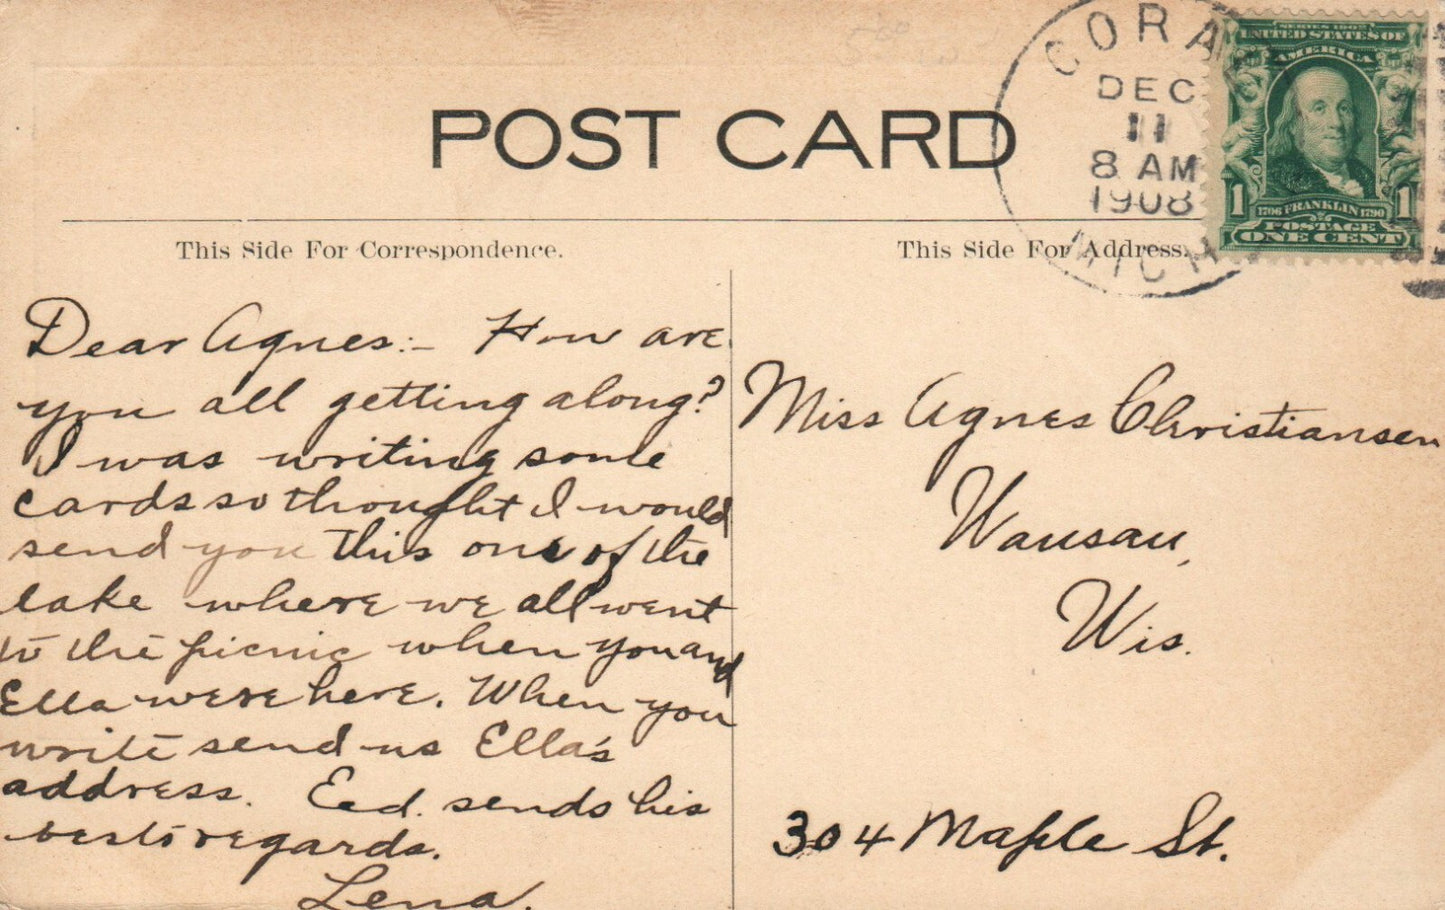 POST CARD
CORAL
DEC
11
8 AM
1908
MICH
SERIES 1902
UNITED STATES OF
AMERICA
1 1
1706 FRANKLIN 1790
POSTAGE
ONE CENT
This Side For Correspondence.
This Side For Address.
Dear Agnes:- How are
you all getting along?
I was writing some
cards so thought I would
send you this one of the
lake where we all went
to the picnic when you and
Ella were here. When you
write send us Ella's
address. Ed. sends his
best regards.
Lena.
Miss Agnes Christiansen
Wausau,
Wis.
304 Maple St.